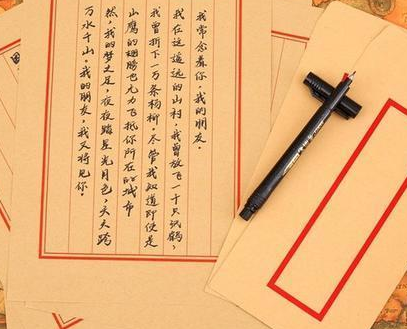 我常念着你，我的朋友。
我在这遥远的山村，我曾放飞一千只纸鹤，
我曾折下一万条杨柳，尽管我知道即便是
山鹰的翅膀也无力飞抵你所在的城市
然，我的梦之足，夜夜踏星光月色，天天跨
万水千山，我的朋友，我又将见你。